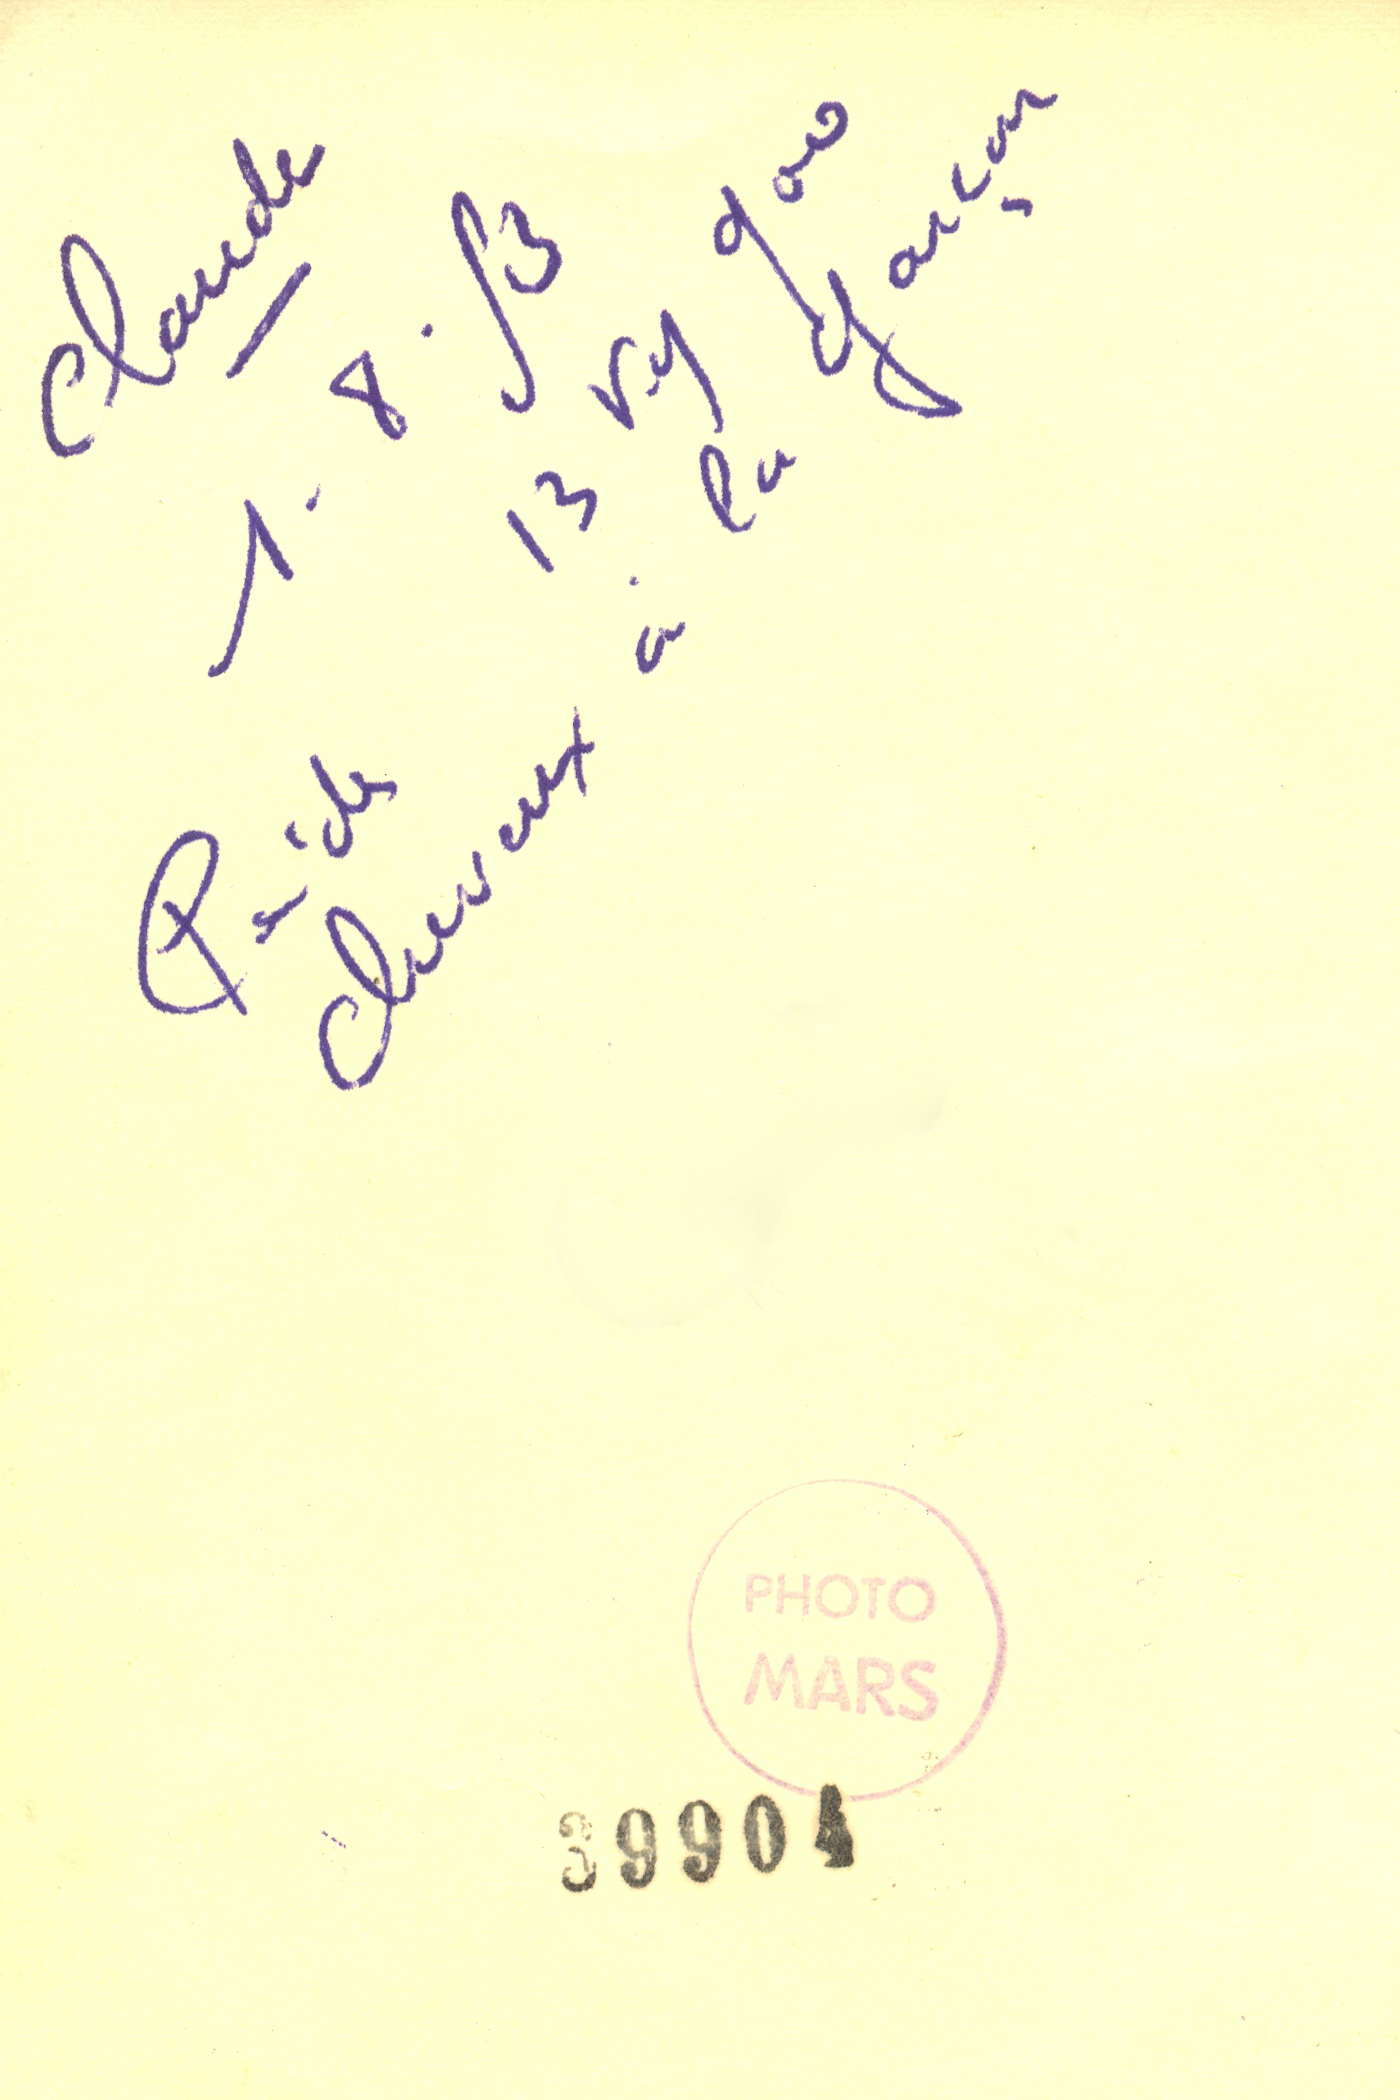 Claude
1. 8. 53
Poids 13 kg 900
cheveux à la garçon
PHOTO
MARS
39904